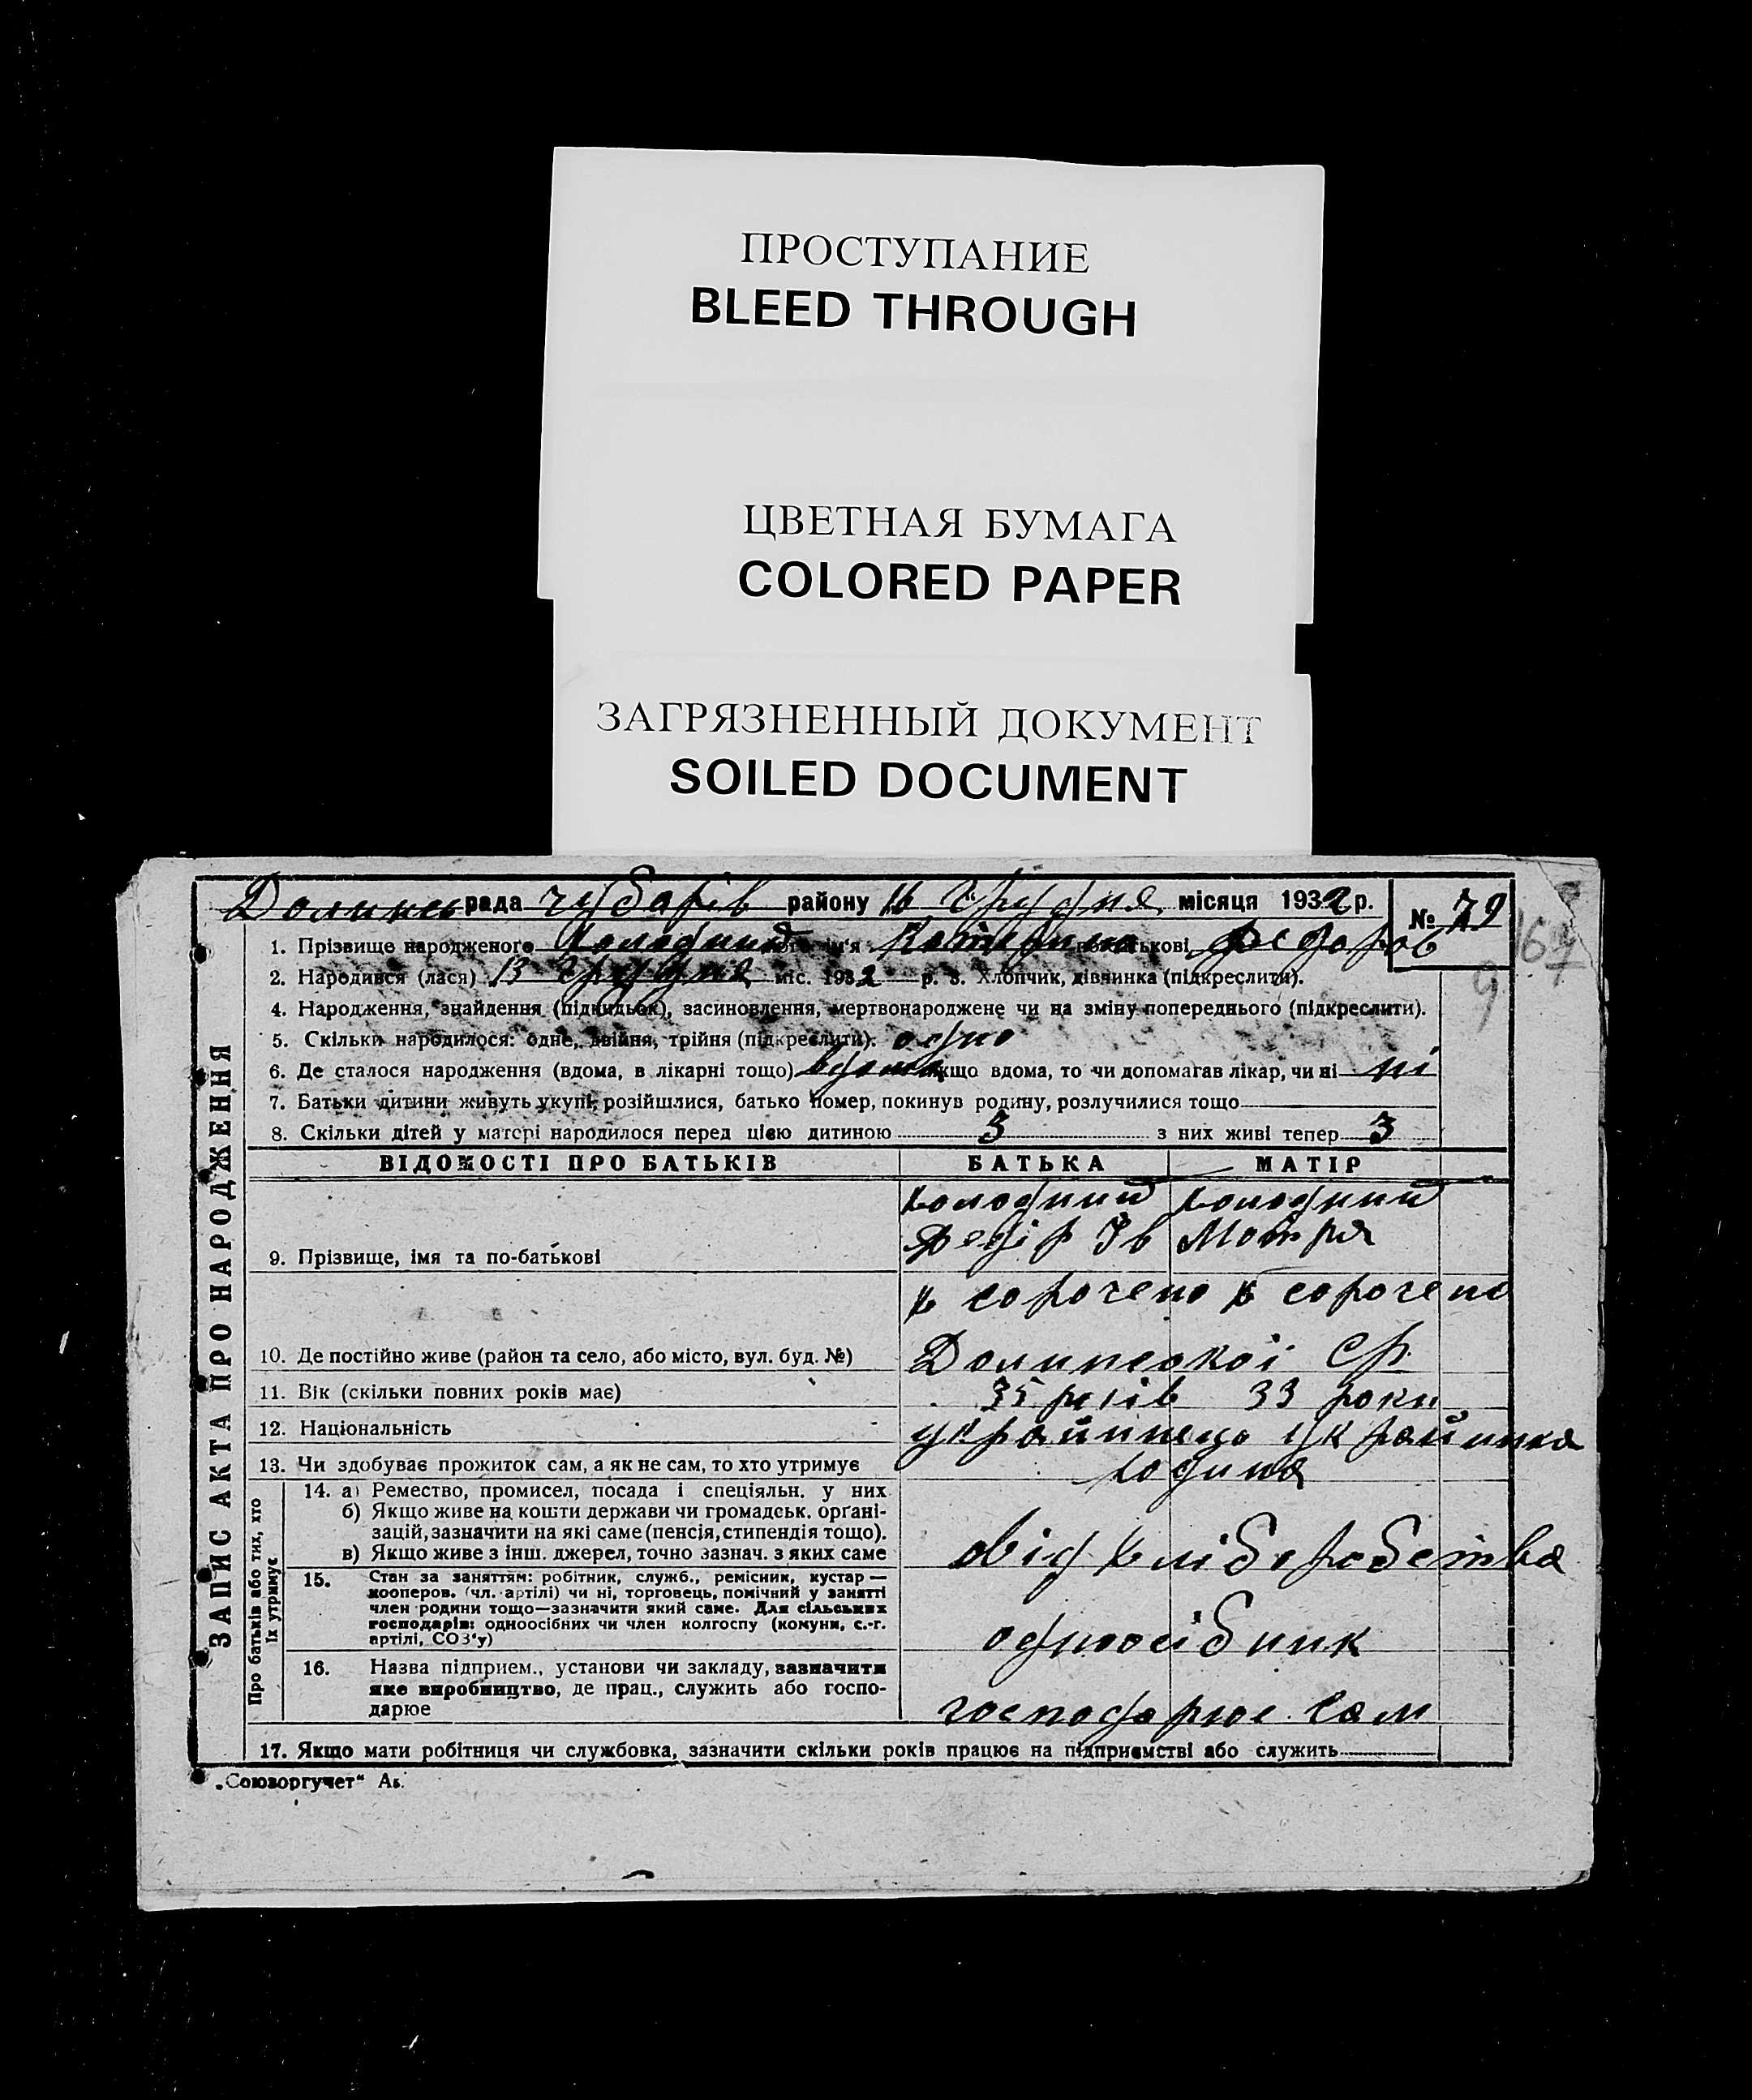 ПРОСТУПАНИЕ
BLEED THROUGH
ЦВЕТНАЯ БУМАГА
COLORED PAPER
ЗАГРЯЗНЕННЫЙ ДОКУМЕНТ
SOILED DOCUMENT
Долинсь рада Чубарів району 16 грудня місяця 1932 р. № 79
167
9
1. Прізвище народженого Холодний ім'я Катерина по батькові Федоров
2. Народився (лася) 13 грудня міс. 1932 р. 3. Хлопчик, дівчинка (підкреслити).
4. Народження, знайдення (підкидьок), засиновлення, мертвонароджене чи на зміну попереднього (підкреслити).
5. Скільки народилося: одне, двійня, трійня (підкреслити). одно
6. Де сталося народження (вдома, в лікарні тощо) вдома якщо вдома, то чи допомагав лікар, чи ні ні
7. Батьки дитини живуть укупі, розійшлися, батько помер, покинув родину, розлучилися тощо
8. Скільки дітей у матері народилося перед цією дитиною 3 з них живі тепер 3
ЗАПИС АКТА ПРО НАРОДЖЕННЯ
ВІДОМОСТІ ПРО БАТЬКІВ БАТЬКА МАТІР
Холодний Холодний
9. Прізвище, імя та по-батькові Федір Ів Мотря
х сорочено х сорочено
10. Де постійно живе (район та село, або місто, вул. буд. №) Долинської ср
11. Вік (скільки повних років має) 35 років 33 роки
12. Національність украйинець украйинка
13. Чи здобуває прожиток сам, а як не сам, то хто утримує родина
Про батьків або тих, хто їх утримує
14. а) Ремество, промисел, посада і спеціяльн. у них
б) Якщо живе на кошти держави чи громадськ. організацій, зазначити на які саме (пенсія, стипендія тощо).
в) Якщо живе з інш. джерел, точно зазнач. з яких саме від хліборобства
15. Стан за заняттям: робітник, служб., ремісник, кустар—
кооперов. (чл. артілі) чи ні, торговець, помічний у занятті
член родини тощо—зазначити який саме. Для сільських
господарів: одноосібних чи член колгоспу (комуни, с.-г.
артілі, СОЗ'у) одноосібник
16. Назва підприєм., установи чи закладу, зазначити
яке виробництво, де прац., служить або госпо-
дарює господарює сам
17. Якщо мати робітниця чи службовка, зазначити скільки років працює на підприємстві або служить
„Союзоргучет“